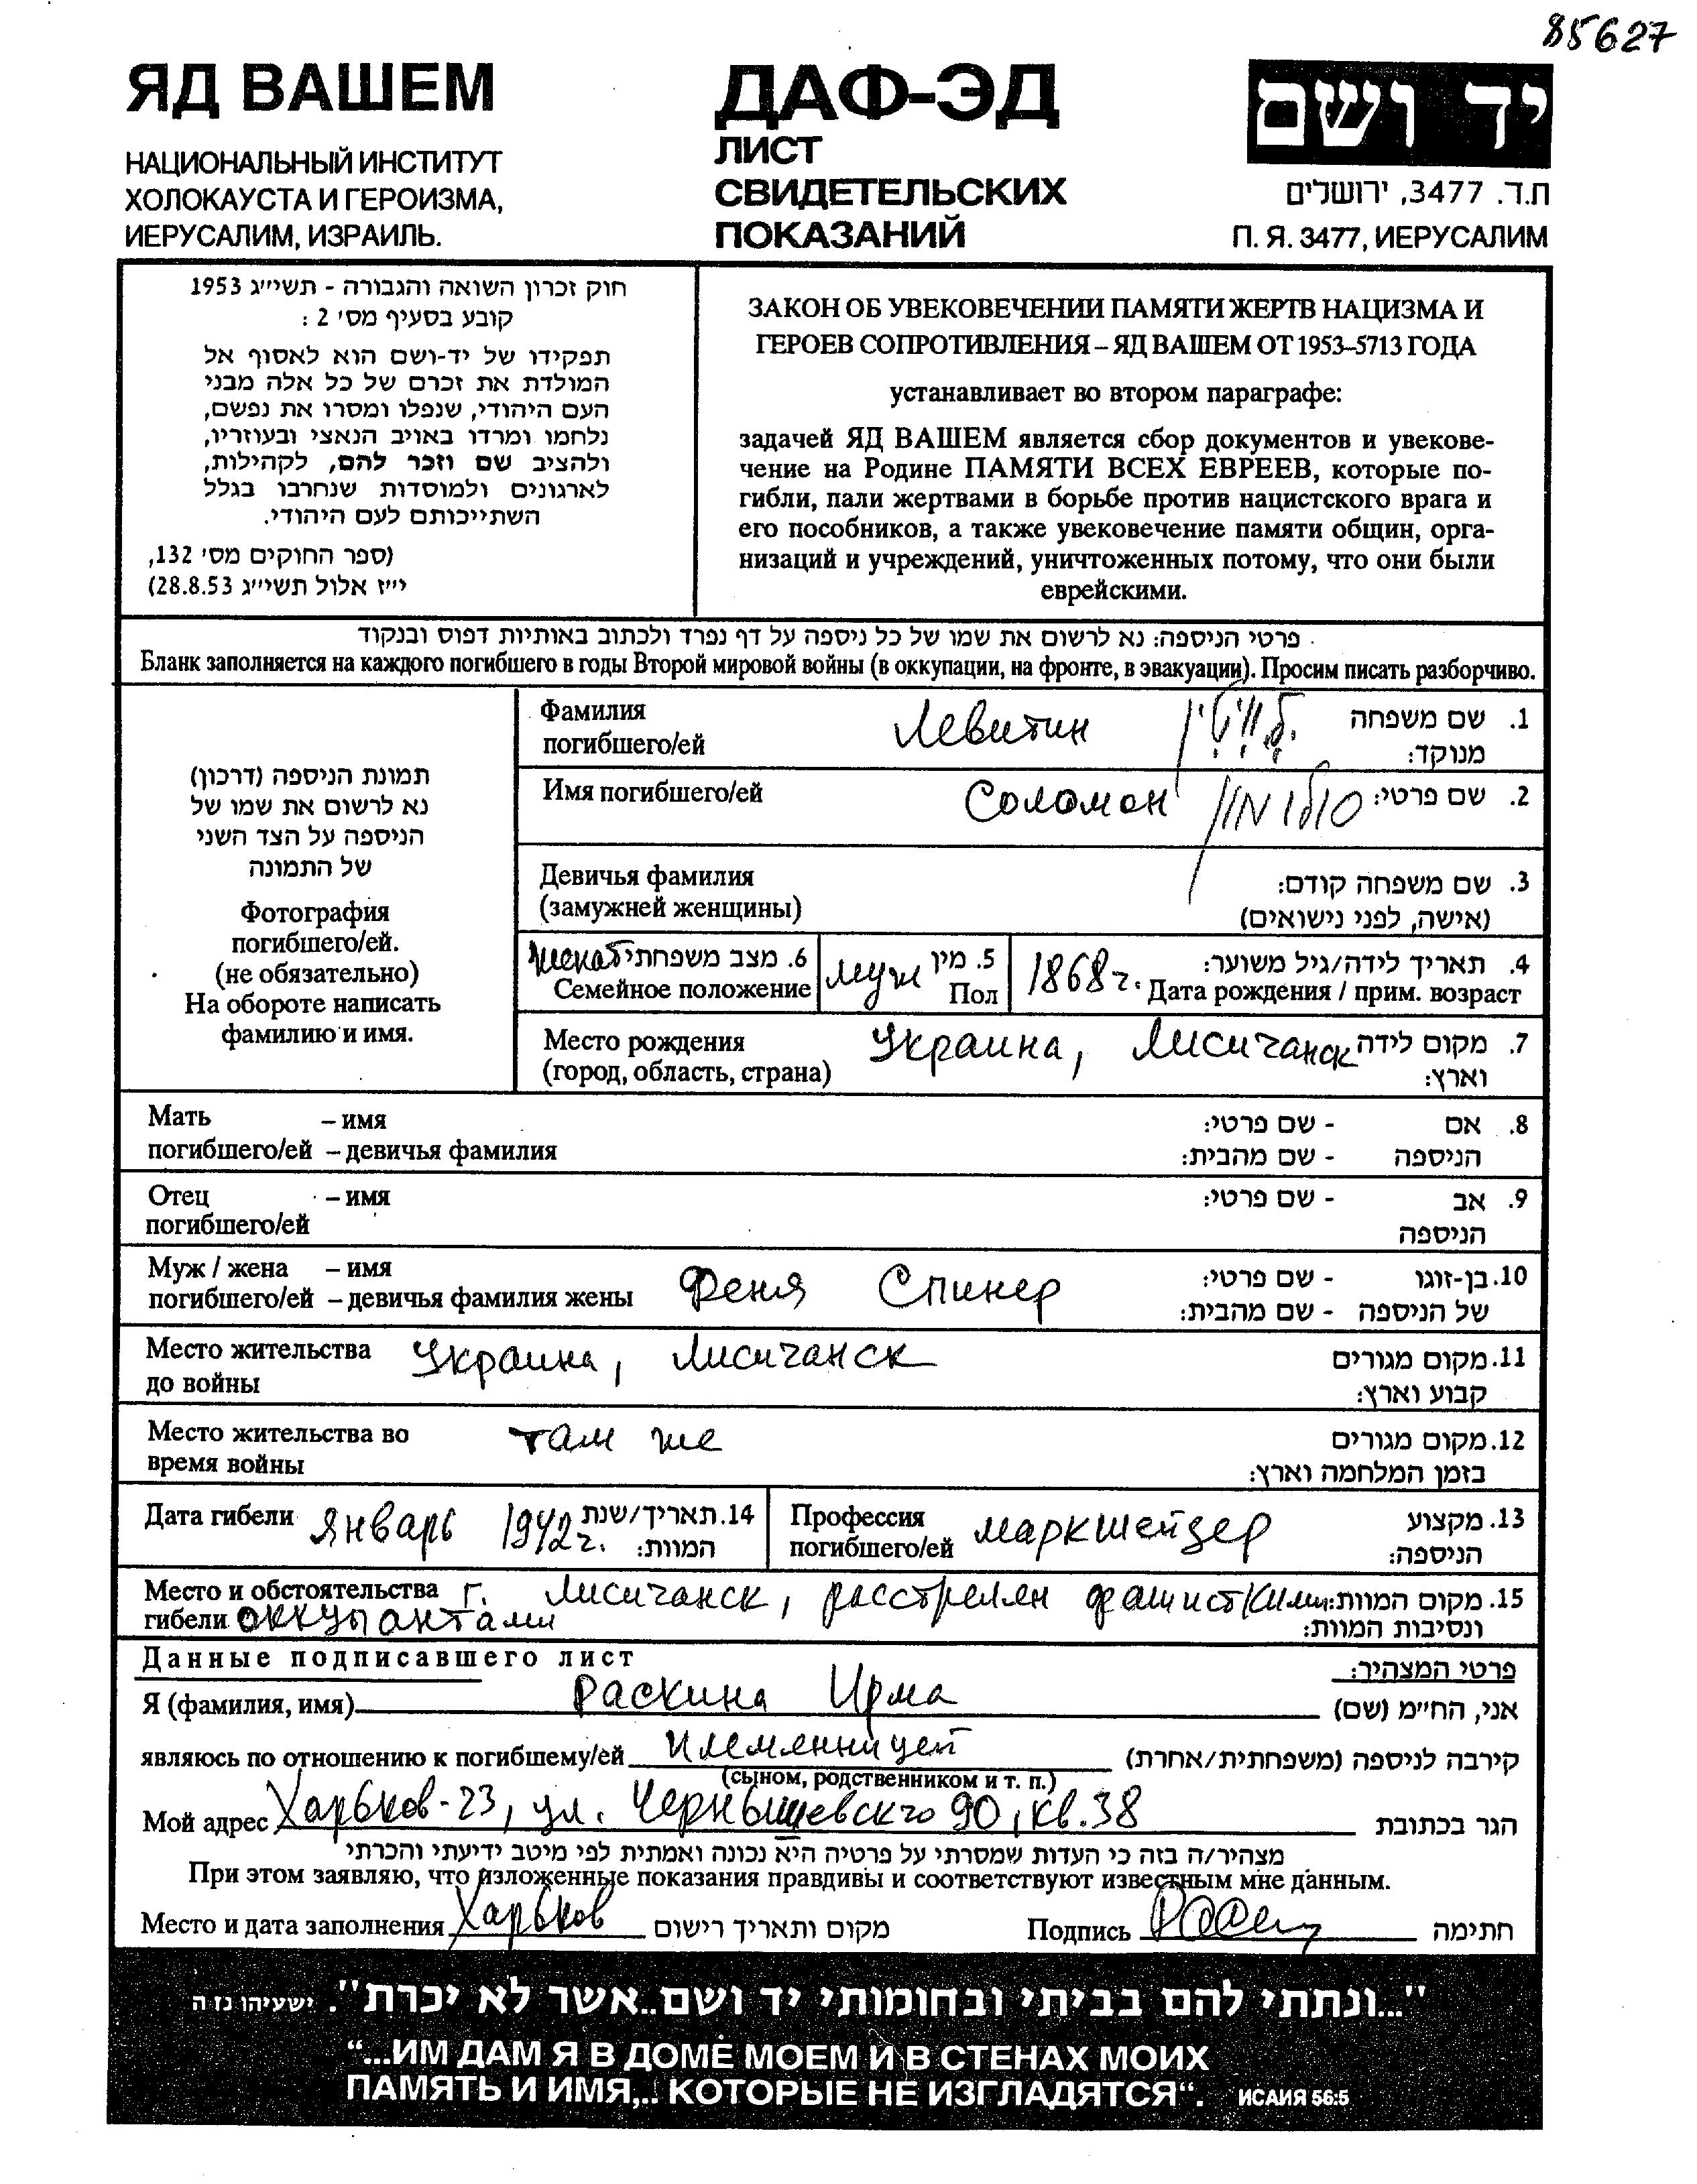 85627
ЯД ВАШЕМ
НАЦИОНАЛЬНЫЙ ИНСТИТУТ
ХОЛОКАУСТА И ГЕРОИЗМА,
ИЕРУСАЛИМ, ИЗРАИЛЬ.
ДАФ-ЭД
ЛИСТ
СВИДЕТЕЛЬСКИХ
ПОКАЗАНИЙ
יד ושם
ת.ד. 3477, ירושלים
П. Я. 3477, ИЕРУСАЛИМ
חוק זכרון השואה והגבורה - תשי״ג 1953
קובע בסעיף מס׳ 2 :
תפקידו של יד-ושם הוא לאסוף אל
המולדת את זכרם של כל אלה מבני
העם היהודי, שנפלו ומסרו את נפשם,
נלחמו ומרדו באויב הנאצי ובעוזריו,
ולהציב שם וזכר להם, לקהילות,
לארגונים ולמוסדות שנחרבו בגלל
השתייכותם לעם היהודי.
(ספר החוקים מס׳ 132,
י״ז אלול תשי״ג 28.8.53)
ЗАКОН ОБ УВЕКОВЕЧЕНИИ ПАМЯТИ ЖЕРТВ НАЦИЗМА И
ГЕРОЕВ СОПРОТИВЛЕНИЯ – ЯД ВАШЕМ ОТ 1953–5713 ГОДА
устанавливает во втором параграфе:
задачей ЯД ВАШЕМ является сбор документов и увекове-
чение на Родине ПАМЯТИ ВСЕХ ЕВРЕЕВ, которые по-
гибли, пали жертвами в борьбе против нацистского врага и
его пособников, а также увековечение памяти общин, орга-
низаций и учреждений, уничтоженных потому, что они были
еврейскими.
פרטי הניספה: נא לרשום את שמו של כל ניספה על דף נפרד ולכתוב באותיות דפוס ובנקוד
Бланк заполняется на каждого погибшего в годы Второй мировой войны (в оккупации, на фронте, в эвакуации). Просим писать разборчиво.
תמונת הניספה (דרכון)
נא לרשום את שמו של
הניספה על הצד השני
של התמונה
Фотография
погибшего/ей.
(не обязательно)
На обороте написать
фамилию и имя.
Фамилия
погибшего/ей
Левитин
לויטין
1. שם משפחה
מנוקד:
Имя погибшего/ей
Соломон
סולומון
2. שם פרטי:
Девичья фамилия
(замужней женщины)
3. שם משפחה קודם:
(אישה, לפני נישואים)
женат
6. מצב משפחתי
Семейное положение
муж
5. מין
Пол
1868 г.
4. תאריך לידה/גיל משוער:
Дата рождения / прим. возраст
Место рождения
(город, область, страна)
Украина, Лисичанск
7. מקום לידה
וארץ:
Мать – имя
погибшего/ей – девичья фамилия
8. אם - שם פרטי:
הניספה - שם מהבית:
Отец – имя
погибшего/ей
9. אב - שם פרטי:
הניספה
Муж / жена – имя
погибшего/ей – девичья фамилия жены
Феня Спинер
10. בן-זוגו - שם פרטי:
של הניספה - שם מהבית:
Место жительства
до войны
Украина, Лисичанск
11. מקום מגורים
קבוע וארץ:
Место жительства во
время войны
там же
12. מקום מגורים
בזמן המלחמה וארץ:
Дата гибели
Январь 1942 г.
14. תאריך/שנת
המוות:
Профессия
погибшего/ей
маркшейдер
13. מקצוע
הניספה:
Место и обстоятельства
гибели
г. Лисичанск, расстрелян фашисткими
оккупантами
15. מקום המוות
ונסיבות המוות:
Данные подписавшего лист
פרטי המצהיר:
Я (фамилия, имя) Раскина Ирма
אני, הח״מ (שם)
являюсь по отношению к погибшему/ей племянницей
(сыном, родственником и т. п.)
קירבה לניספה (משפחתית/אחרת)
Мой адрес Харьков-23, ул. Чернышевского 90, кв. 38
הגר בכתובת
מצהיר/ה בזה כי העדות שמסרתי על פרטיה היא נכונה ואמתית לפי מיטב ידיעתי והכרתי
При этом заявляю, что изложенные показания правдивы и соответствуют известным мне данным.
Место и дата заполнения Харьков
מקום ותאריך רישום
Подпись
חתימה
"...ונתתי להם בביתי ובחומותי יד ושם..אשר לא יכרת". ישעיהו נו ה
“...ИМ ДАМ Я В ДОМЕ МОЕМ И В СТЕНАХ МОИХ
ПАМЯТЬ И ИМЯ,.. КОТОРЫЕ НЕ ИЗГЛАДЯТСЯ“. ИСАИЯ 56:5